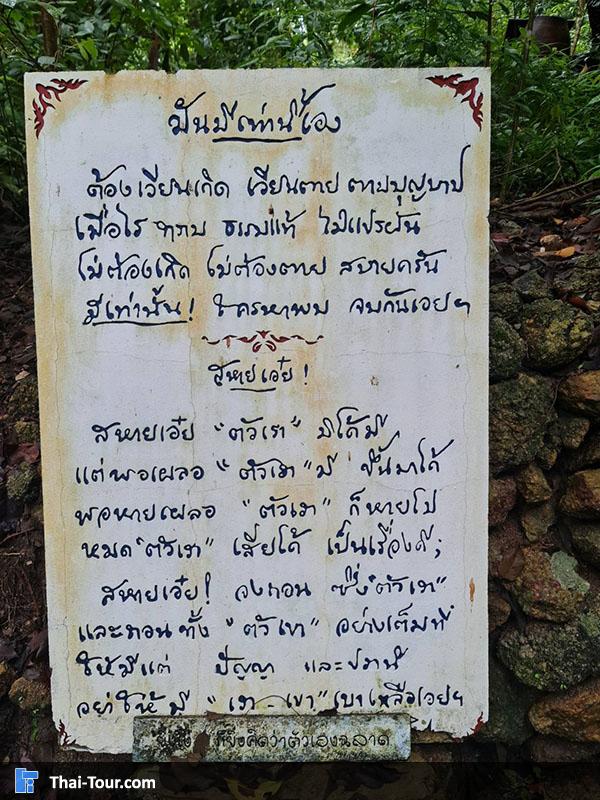 มันมีเท่านี้เอง
ต้องเวียนเกิด เวียนตาย ตามบุญบาป
เมื่อไร ทราบ ธรรมแท้ ไม่แปรผัน
ไม่ต้องเกิด ไม่ต้องตาย สบายครัน
มีเท่านั้น! ใครหาพบ จบกันเอยฯ
สหายเอ๋ย!
สหายเอ๋ย "ตัวเรา" มิได้มี
แต่พอเผลอ "ตัวเรา" มี ขึ้นมาได้
พอหายเผลอ "ตัวเรา" ก็หายไป
หมด "ตัวเรา" เสียได้ เป็นเรื่องดี;
สหายเอ๋ย! จงถอน ซึ่ง "ตัวเรา"
และถอนทั้ง "ตัวเขา" อย่างเต็มที่
ให้มีแต่ ปัญญา และปรานี
อย่าให้มี "เรา - เขา" เบาเหลือเอยฯ
คิดว่าตัวเองฉลาด
Thai-Tour.com